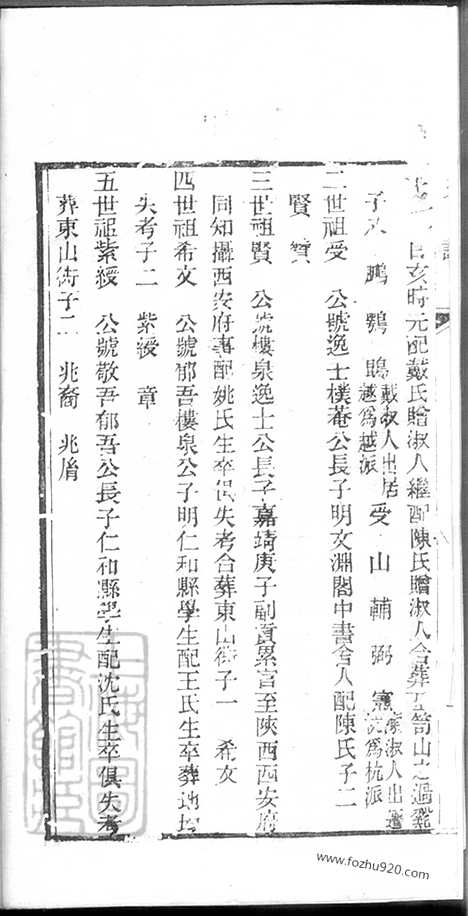 日亥時元配戴氏贈淑人繼配陳氏贈淑人合葬笥山之過飛
子 鵬 鶚 鵾 戴淑人出居越為越派 受 山 輔 弼 憲 陳淑人出遷杭為杭派
二世祖受 公號逸士樸菴公長子明文淵閣中書舍人配陳氏子二
賢 賓
三世祖賢 公號樓泉逸士公長子嘉靖庚子副貢累官至陝西西安府
同知攝西安府事配姚氏生卒俱失考合葬東山街子一 希文
四世祖希文 公號郁吾樓泉公子明仁和縣學生配王氏生卒葬地均
失考子二 紫綬 章
五世祖紫綬 公號敬吾郁吾公長子仁和縣學生配沈氏生卒俱失考
葬東山街子二 兆裔 兆脩
www.fozhu920.com